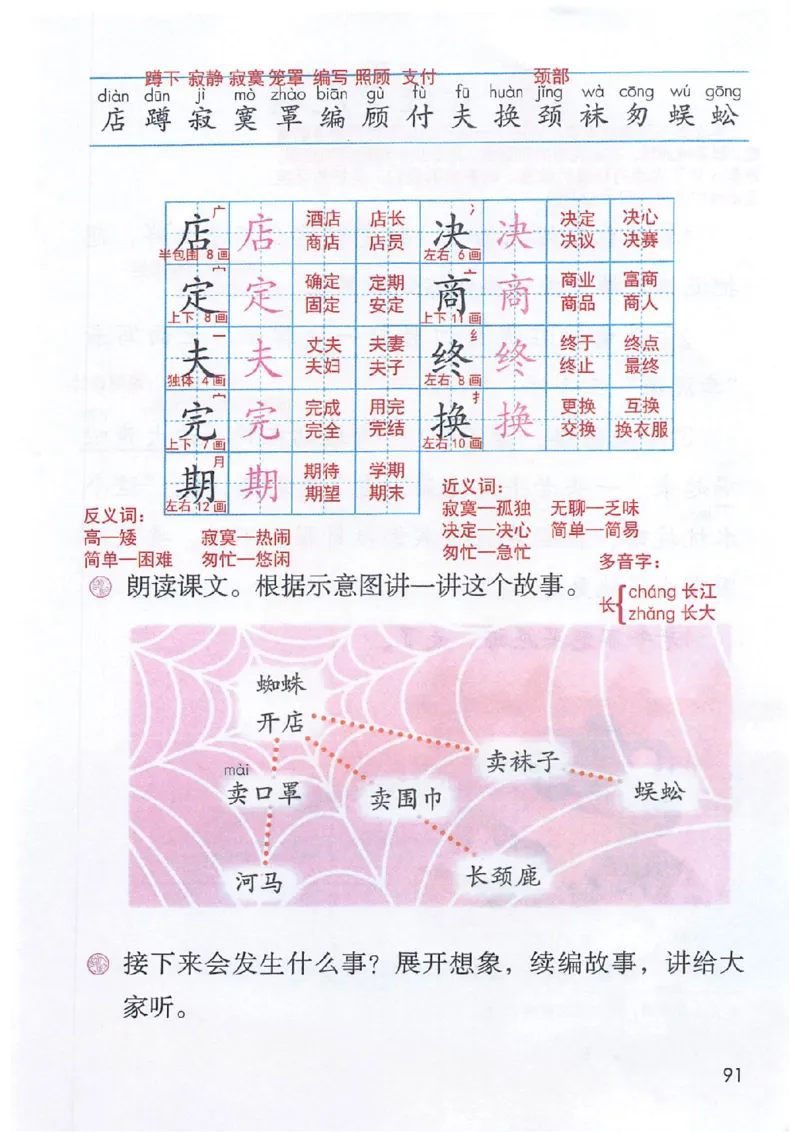 蹲下 寂静 寂寞 笼罩 编写 照顾 支付 颈部
diàn dūn jì mò zhào biān gù fù fū huàn jǐng wà cōng wú gōng
店 蹲 寂 寞 罩 编 顾 付 夫 换 颈 袜 匆 蜈 蚣
店 广 半包围 8画 店 酒店 店长 商店 店员
决 冫 左右 6画 决 决定 决心 决议 决赛
定 宀 上下 8画 定 确定 定期 固定 安定
商 亠 上下 11画 商 商业 富商 商品 商人
夫 一 独体 4画 夫 丈夫 夫妻 夫妇 夫子
终 纟 左右 8画 终 终于 终点 终止 最终
完 宀 上下 7画 完 完成 用完 完全 完结
换 扌 左右 10画 换 更换 互换 交换 换衣服
期 月 左右 12画 期 期待 学期 期望 期末
反义词:
高—矮 寂寞—热闹
简单—困难 匆忙—悠闲
近义词:
寂寞—孤独 无聊—乏味
决定—决心 简单—简易
匆忙—急忙
多音字:
长 cháng 长江
zhǎng 长大
朗读课文。根据示意图讲一讲这个故事。
蜘蛛
开店
mài
卖口罩
卖围巾
卖袜子
蜈蚣
河马
长颈鹿
接下来会发生什么事？展开想象，续编故事，讲给大
家听。
91